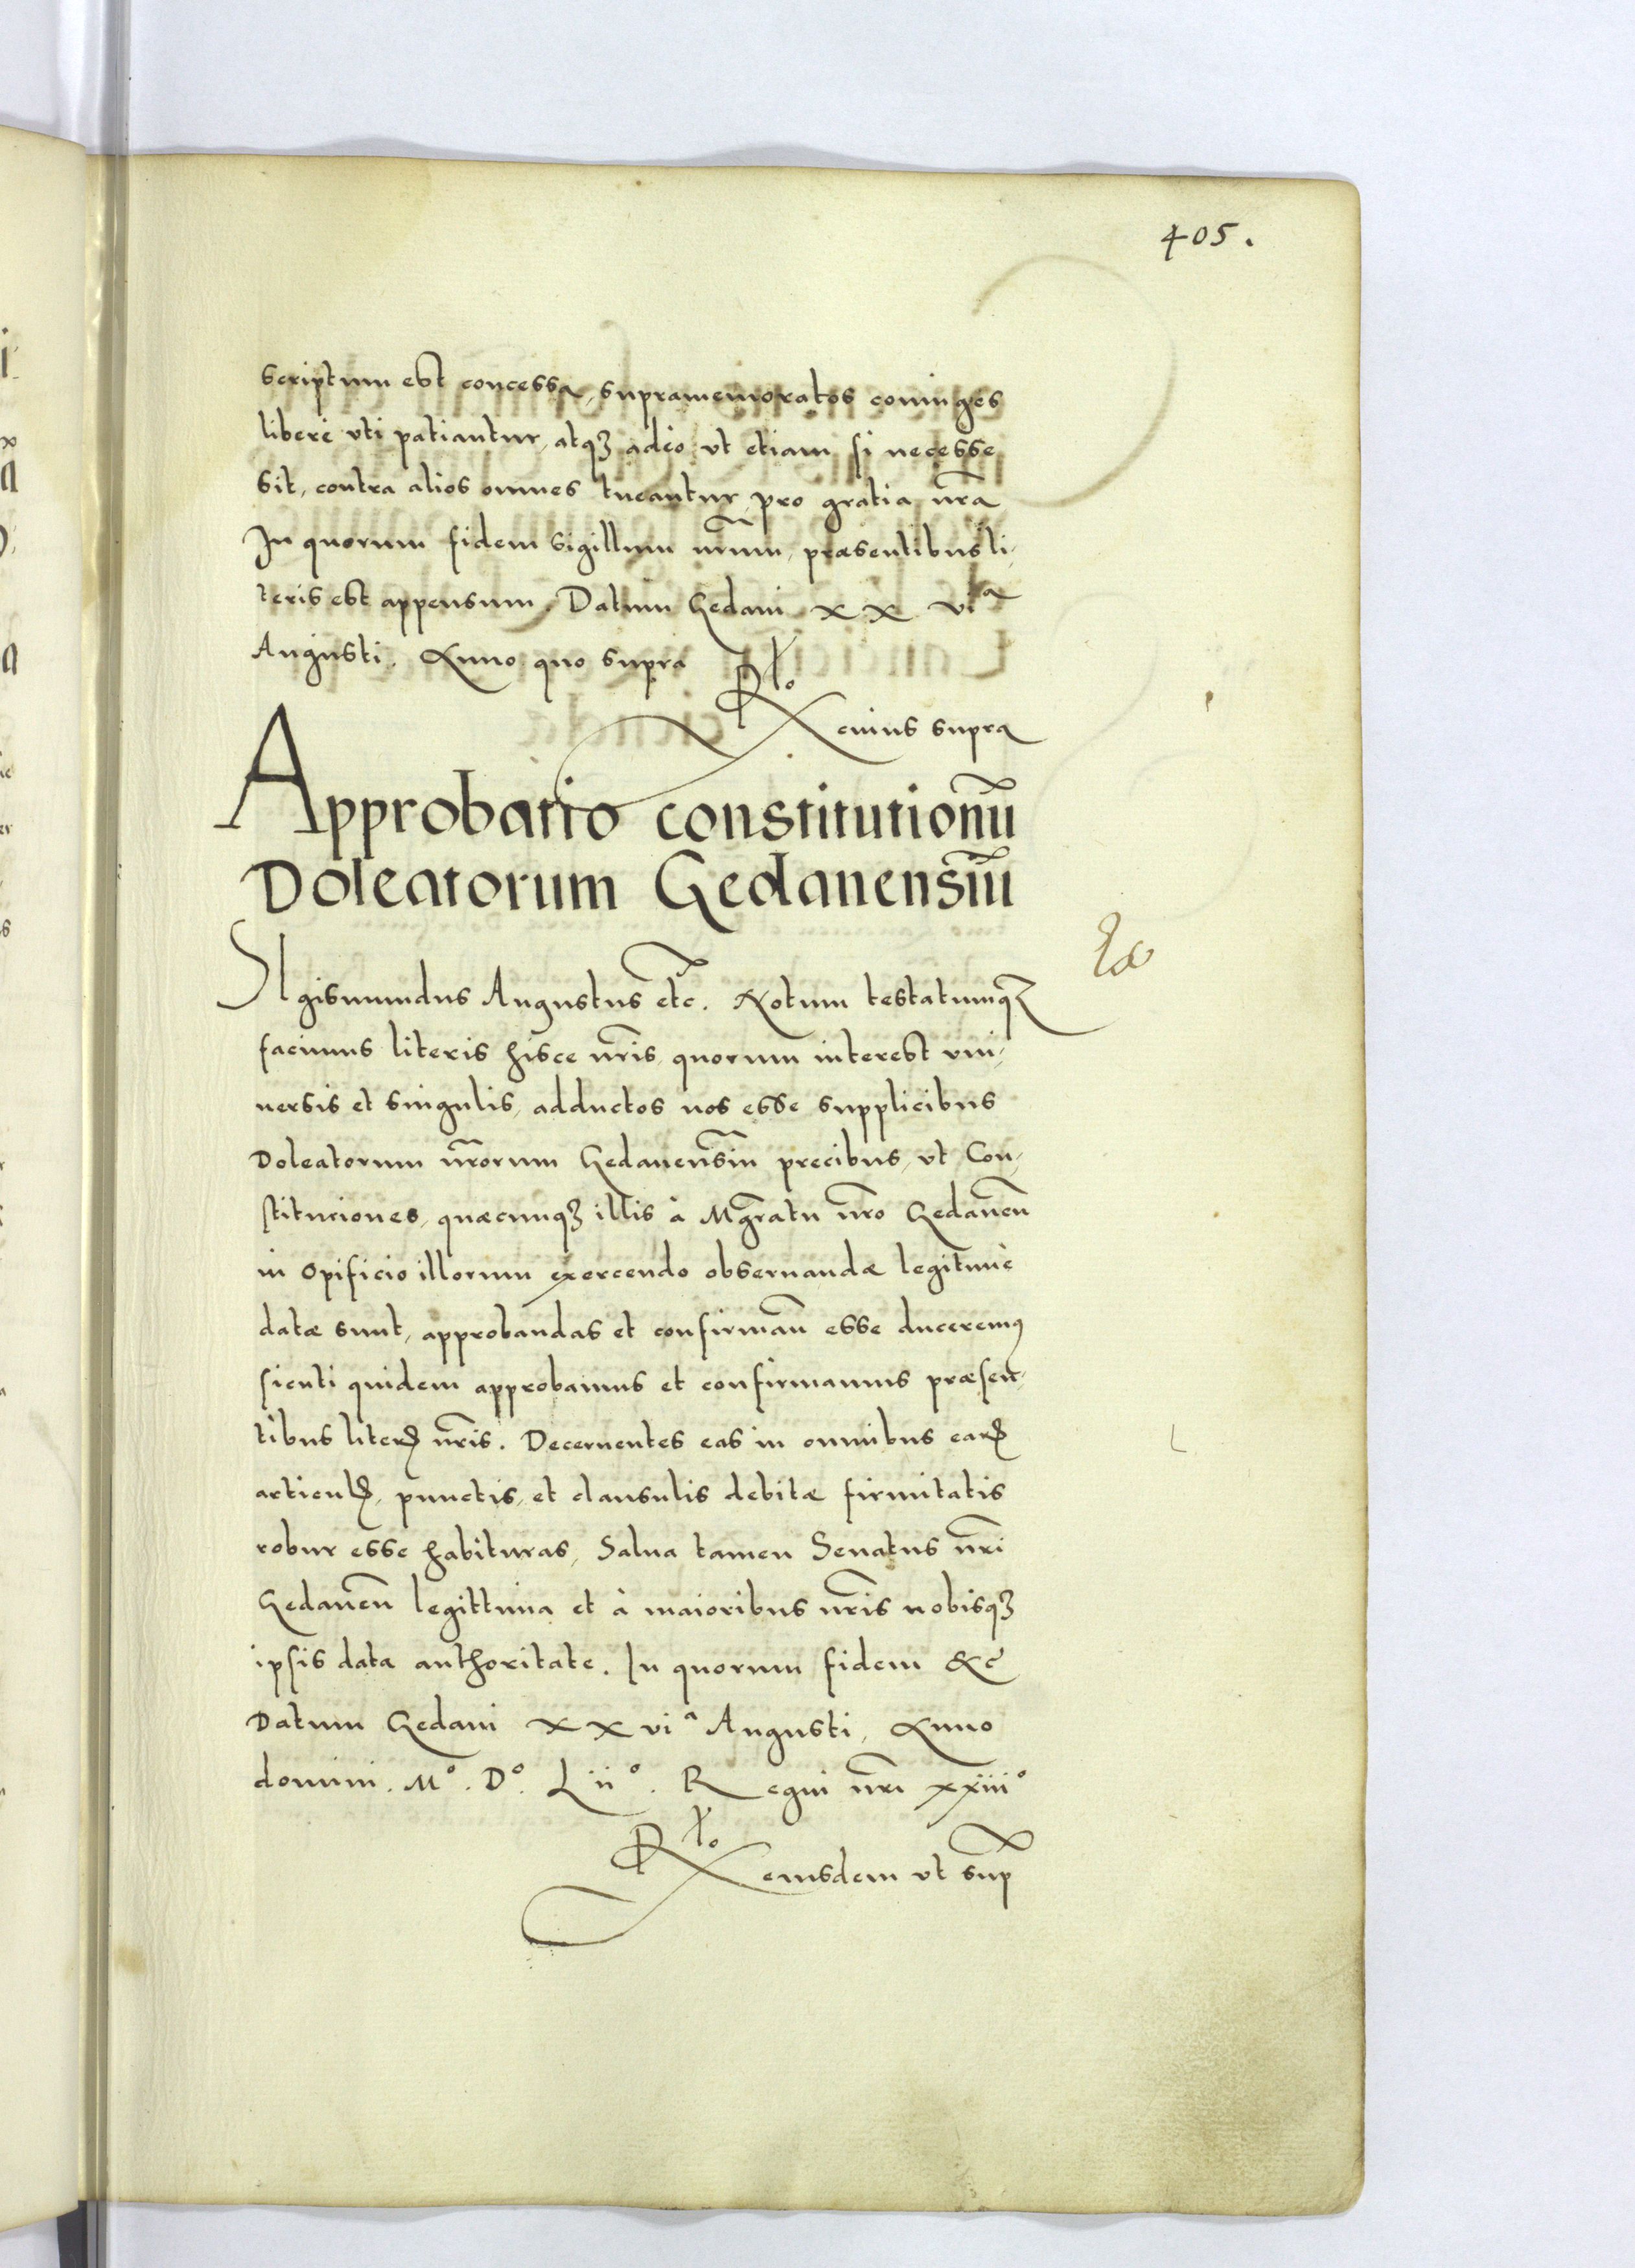 405.
scriptum est concessa, supramemoratos coniuges
libere vti patiantur, atqʒ adeo vt etiam si necesse
sit, contra alios omnes tueantur, pro gratia nr̃a
In quorum fidem sigillum nr̃um, præsentibus li,
teris est appensum. Datum Gedani xx viª
Augusti. Anno quo supra
Rlo cuius supra
Approbatio constitutionũ
Doleatorum Gedanensiũ
SIgismundus Augustus etc̃. Notum testatumqʒ
facimus literis hisce nr̃is, quorum interest vni,
uersis et singulis, adductos nos esse supplicibus
Doleatorum nr̃orum Gedanensiũ precibus, vt Con,
stituciones, quæcunqʒ illis à Mgr̃atu nr̃o Gedaneñ
in Opificio illorum exercendo obseruandæ legitimè
datæ sunt, approbandas et confirmañ esse duceremꝰ
sicuti quidem approbamus et confirmamus præsen,
tibus literꝭ nr̃is. Decernentes eas in omnibus earꝝ
articulꝭ, punctis, et clausulis debitæ firmitatis
robur esse habituras, Salua tamen Senatus nr̃i
Gedaneñ legittima et à maioribus nr̃is nobisqʒ
ipsis data authoritate. In quorum fidem &c̃
Datum Gedani xx viª Augusti, Anno
domini. Mº. Dº. Liiº. Regni nr̃i xxiiiº
Rlo eiusdem vt sup̃